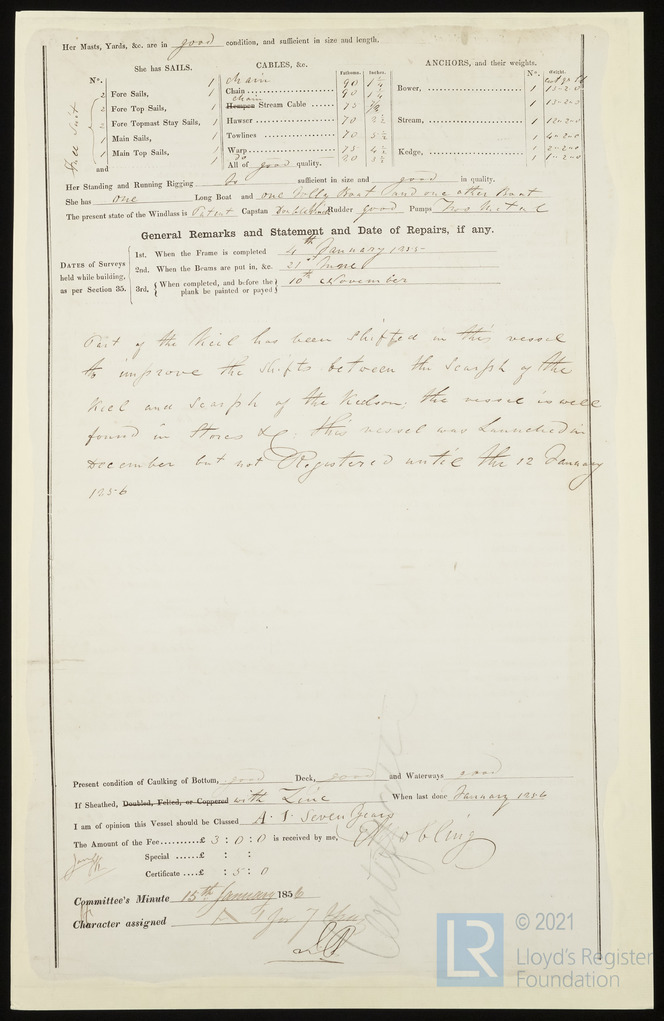 Her Masts, Yards, &c. are in good condition, and sufficient in size and length.
She has SAILS.
CABLES, &c.
Fathoms. Inches.
ANCHORS, and their weights.
Nº. Weight.
Nº.
2 Fore Sails, 1
2 Fore Top Sails, 1
2 Fore Topmast Stay Sails, 1
1 Main Sails, 1
1 Main Top Sails, 1
and
Full Suit
Chain 90
Chain 90
Chain
Hempen Stream Cable 75 7/8
Hawser 70
Towlines 70
Warp 75
do 20
All of good quality.
Bower, 1
1
Stream, 1
1
Kedge, 1
1
Her Standing and Running Rigging is sufficient in size and good in quality.
She has one Long Boat and one Jolly Boat and one other Boat
The present state of the Windlass is Patent Capstan Rudder good Pumps Two Metal
General Remarks and Statement and Date of Repairs, if any.
DATES of Surveys held while building, as per Section 35.
1st. When the Frame is completed 4th January 1855
2nd. When the Beams are put in, &c. 21st June
3rd. { When completed, and before the plank be painted or payed } 10th November
Part of the Keel has been shifted in this vessel
to improve the shifts between the Scarph of the
Keel and Scarph of the Kelson. the vessel is well
found in Stores &c. this vessel was Launched in
December but not Registered until the 12 January
1856
Present condition of Caulking of Bottom, good Deck, good and Waterways good
If Sheathed, Doubled, Felted, or Coppered with Zinc When last done January 1856
I am of opinion this Vessel should be Classed A.1. Seven Years
The Amount of the Fee..........£ 3 : 0 : 0 is received by me,
Special ......£ : :
Certificate ....£ : 5 : 0
Committee's Minute 15th January 1856
Character assigned A 1 for 7 Years
LR
© 2021
Lloyd's Register
Foundation